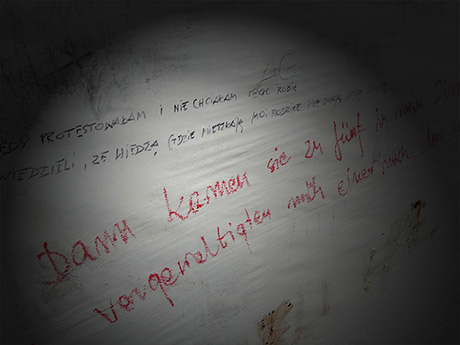 EDY PROTESTOWAŁAM I NIE CHCIAŁAM TEGO ROBIĆ
WIEDZIELI, ŻE WIEDZĄ GDZIE MIESZKAJĄ MOI RODZICE
Dann kamen sie zu fünf in mein
vergewaltigten mich einer nach